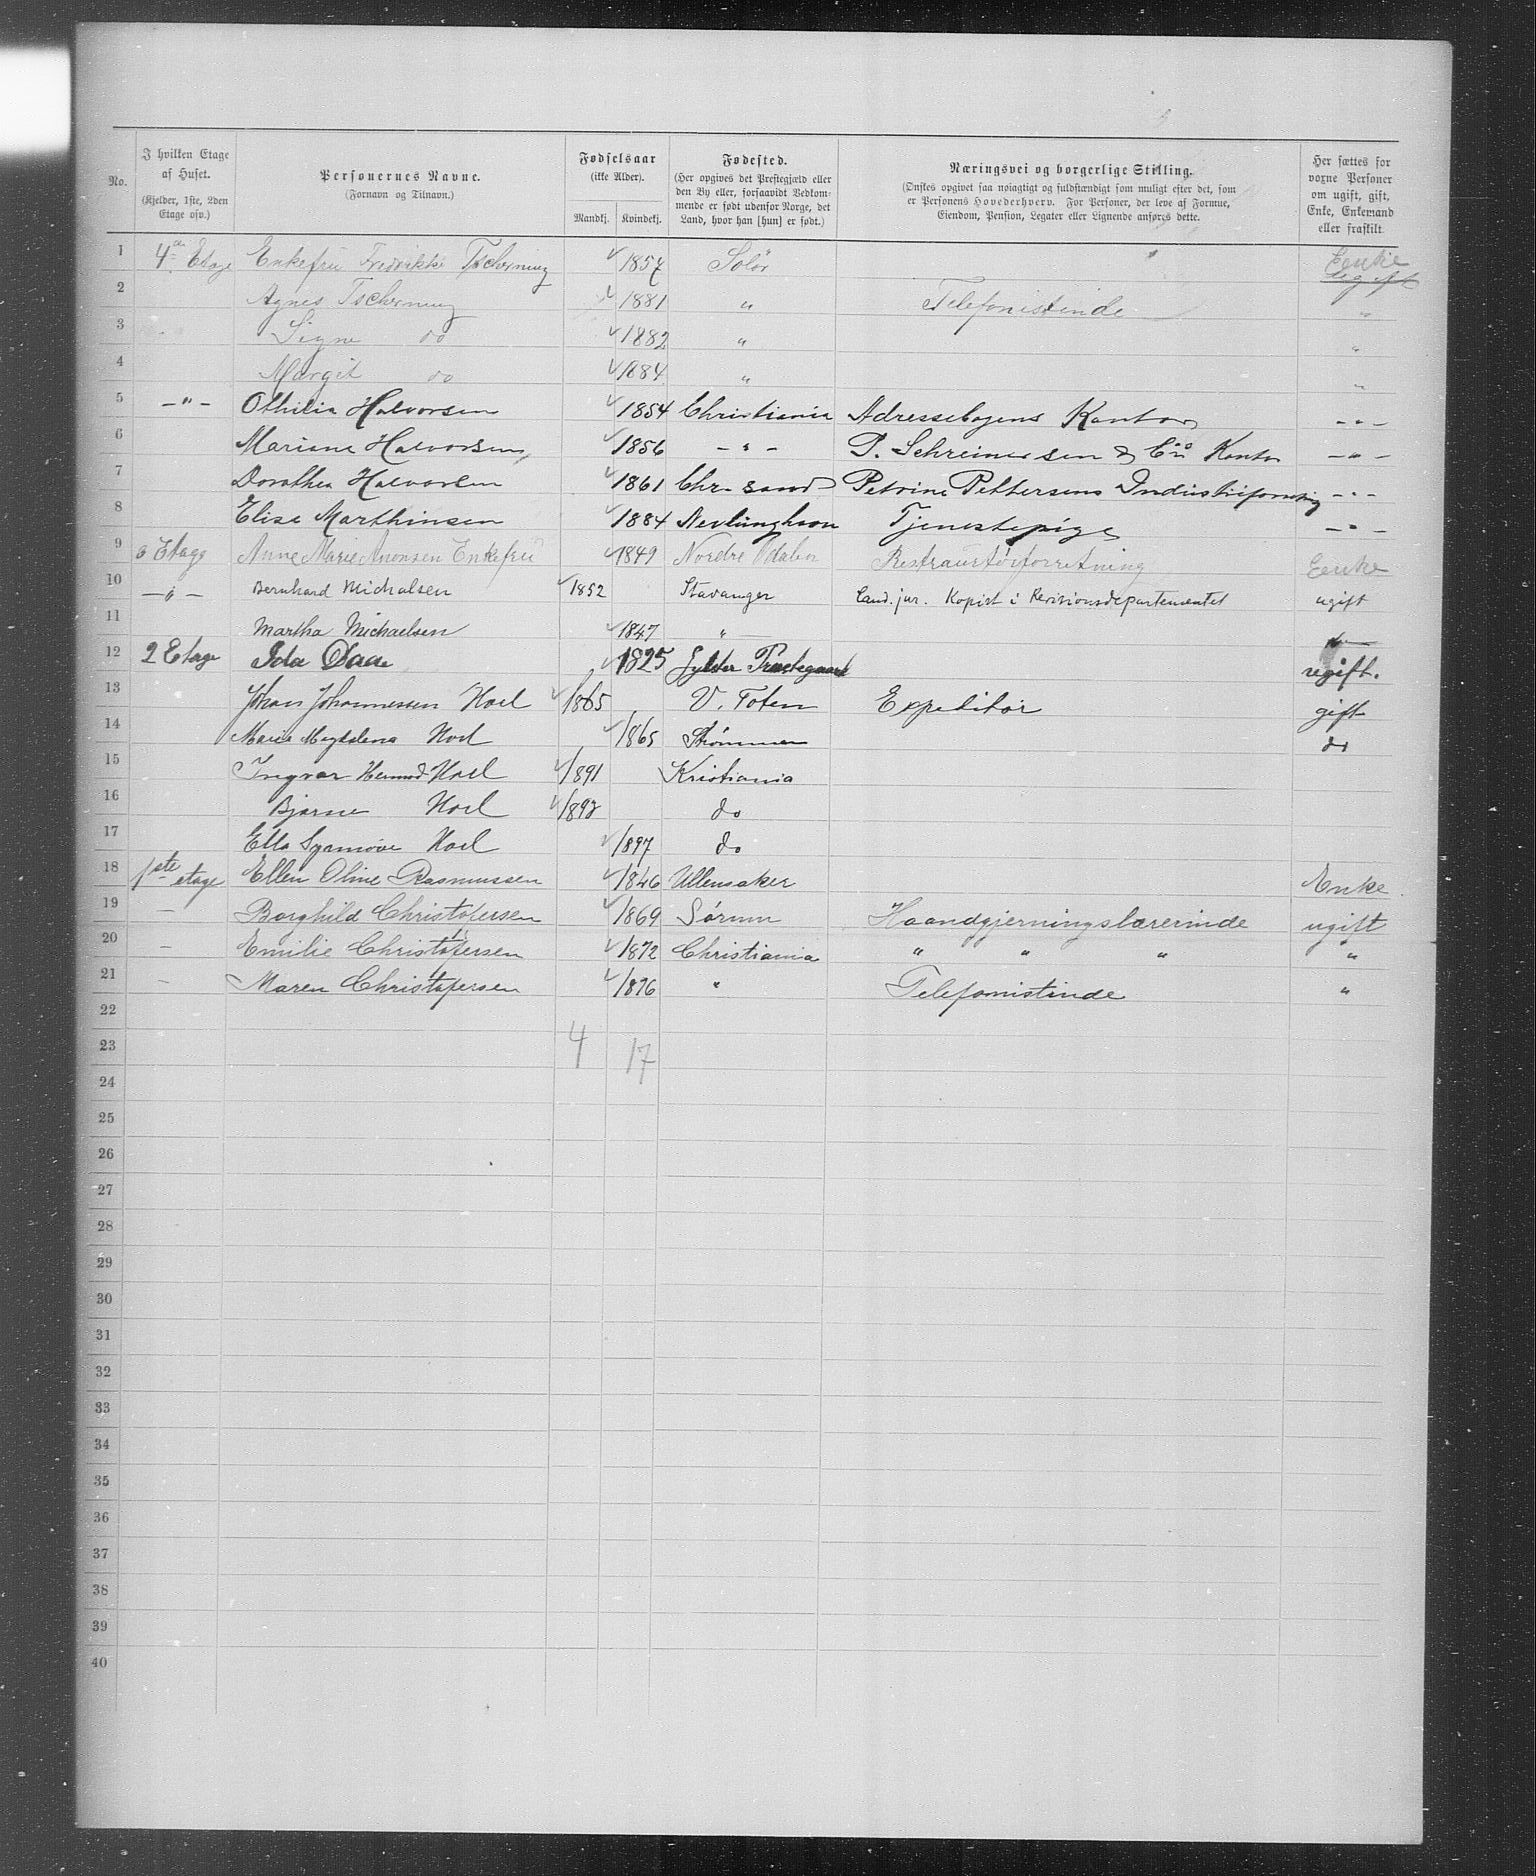 No.
I hvilken Etage af Huset. (Kjelder, 1ste, 2den Etage osv.)
Personernes Navne. (Fornavn og Tilnavn.)
Fødselsaar (ikke Alder). Mandkj. Kvindekj.
Fødested. (Her opgives det Prestegjæld eller den By eller, forsaavidt Vedkommende er født udenfor Norge, det Land, hvor han [hun] er født.)
Næringsvei og borgerlige Stilling. (Ønskes opgivet saa nøiagtigt og fuldstændigt som muligt efter det, som er Personens Hovederhverv. For Personer, der leve af Formue, Eiendom, Pension, Legater eller Lignende anføres dette.
Her sættes for voxne Personer om ugift, gift, Enke, Enkemand eller fraskilt.
1 4de Etage Enkefru Fredrikke Tscherning 1857 Solör Enke ugift
2 Agnes Tscherning 1881 " Telefonistinde "
3 Signe do 1882 " "
4 Margit do 1884 " "
5 -"- Othilia Halvorsen 1854 Christiania Adressebogens Kontor -"-
6 Mariane Halvorsen 1856 -"- P. Schreiner sen & Co Kontor -"-
7 Dorothea Halvorsen 1861 Chr-sand Petrine Pettersens Industriforretning -"-
8 Elise Marthinsen 1884 Nevlunghavn Tjenestepige -"-
9 Etage Anne Marie Enkefru 1849 Nordre Odalen Restraurtörforretning Enke
10 -"- Bernhard Michalsen 1852 Stavanger Cand. jur. Kopist i Revisionsdepartementet ugift
11 Martha Michaelsen 1847 "
12 2 Etage Ida Daae 1825 Prestegaard ugift.
13 Johan Johannessen Hoel 1865 V. Toten Expeditör gift
14 Marie Magdalena Hoel 1865 Strømmen do
15 Ingvar Hoel 1891 Kristiania
16 Bjarne Hoel 1892 do
17 Ella Synnøve Hoel 1897 do
18 1ste etage Ellen Oline Rasmussen 1846 Ullensaker Enke
19 - Borghild Christofersen 1869 Sørum Haandgjerningslærerinde ugift
20 - Emilie Christofersen 1872 Christiania " " " "
21 - Maren Christofersen 1876 " Telefonistinde "
22
23 4 17
24
25
26
27
28
29
30
31
32
33
34
35
36
37
38
39
40